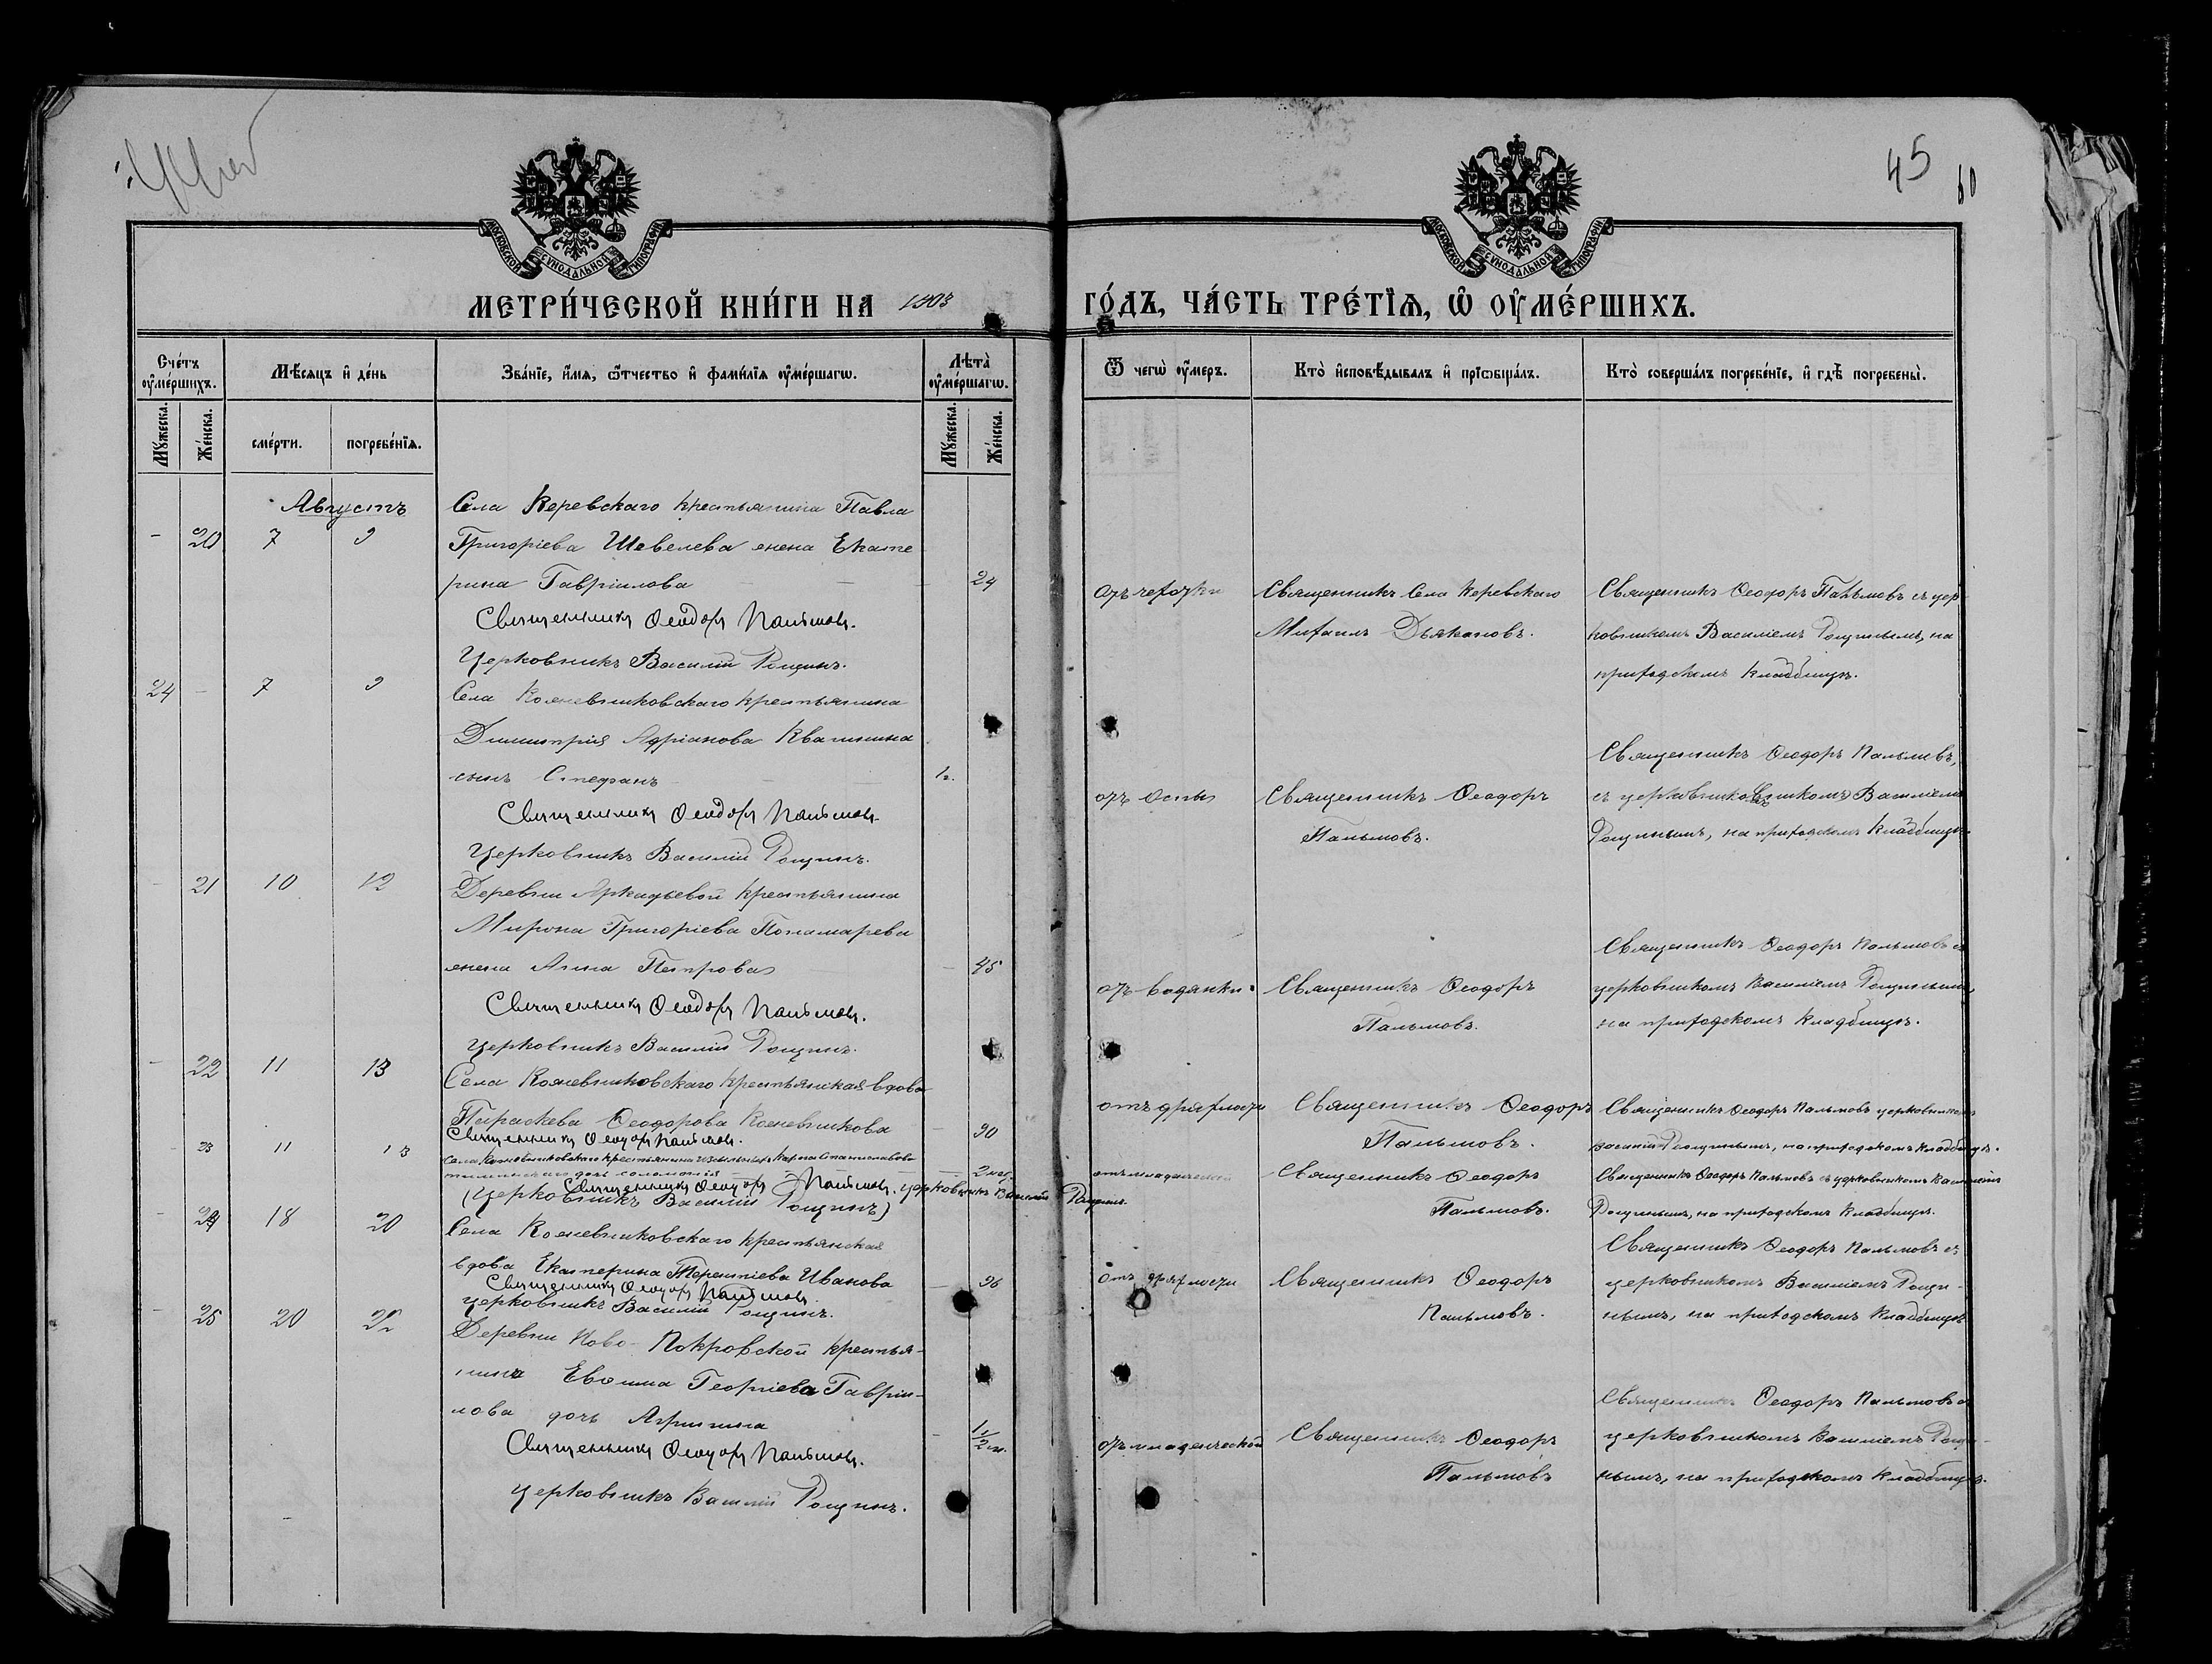 45
60
МОСКОВСКОЙ СѴНОДАЛЬНОЙ ТИПОГРАФІИ
МОСКОВСКОЙ СѴНОДАЛЬНОЙ ТИПОГРАФІИ
МЕТРИ́ЧЕСКОЙ КНИ́ГИ НА 1903 ГО́ДЪ, ЧА́СТЬ ТРЕ́ТІѦ, Ѡ҆ ОУ҆МЕ́РШИХЪ.
Сче́тъ оу҆ме́ршихъ.
Мѣ́сѧцъ и҆ де́нь
Зва́нїе, и҆́мѧ, ѻ҆́тчество и҆ фами́лїѧ оу҆ме́ршагѡ.
Лѣ́та оу҆ме́ршагѡ.
Ѿ чегѡ̀ оу҆́меръ.
Кто̀ и҆сповѣ́дывалъ и҆ прїѡбща́лъ.
Кто̀ соверша́лъ погребе́нїе, и҆ гдѣ̀ погребены̀.
Мꙋ́жеска.
Же́нска.
сме́рти.
погребе́нїѧ.
Мꙋ́жеска.
Же́нска.
Августъ
- 20 7 9
Села Керевскаго крестьянина Павла
Григоріева Шевелева жена Екате
рина Гавріилова - 24
Священникъ Ѳеодоръ Пальмовъ.
Церковникъ Василій Рощинъ.
отъ чехотки
Священникъ Села Керевскаго
Михаилъ Дьяконовъ.
Священникъ Ѳеодоръ Пальмовъ съ цер
ковникомъ Василіемъ Рощинымъ, на
приходскомъ кладбищѣ.
24 - 7 9
Села Кожевниковскаго крестьянина
Димитрія Адріанова Квашнина
сынъ Стефанъ - 1 г.
Священникъ Ѳеодоръ Пальмовъ.
Церковникъ Василій Рощинъ.
отъ оспы
Священникъ Ѳеодоръ
Пальмовъ.
Священникъ Ѳеодоръ Пальмовъ,
Рощинымъ, на приходскомъ кладбищѣ.
- 21 10 12
Деревни Аркадьевой крестьянина
Мирона Григоріева Пономарева
жена Анна Петрова - 45
Священникъ Ѳеодоръ Пальмовъ.
Церковникъ Василій Рощинъ.
отъ водянки
Священникъ Ѳеодоръ
Пальмовъ.
Священникъ Ѳеодоръ Пальмовъ съ
церковникомъ Василіемъ Рощинымъ,
на приходскомъ кладбищѣ.
- 22 11 13
Села Кожевниковскаго крестьянская вдова
Параскева Ѳеодорова Кожевникова - 90
Священникъ Ѳеодоръ Пальмовъ.
отъ дряхлости
Священникъ Ѳеодоръ
Пальмовъ.
Священникъ Ѳеодоръ Пальмовъ церковникомъ
Рощинымъ, на приходскомъ кладбищѣ.
- 23 11 13
Села Кожевниковскаго крестьянина изъ ссыльныхъ Карла Станиславова
дочь Соломонія - 2 мѣс.
Священникъ Ѳеодоръ Пальмовъ. Церковникъ Василій Рощинъ.
(Церковникъ Василій Рощинъ)
отъ младенческой
Священникъ Ѳеодоръ
Пальмовъ.
Священникъ Ѳеодоръ Пальмовъ съ церковникомъ Василіемъ
Рощинымъ, на приходскомъ кладбищѣ.
- 24 18 20
Села Кожевниковскаго крестьянская
вдова Екатерина Терентіева Иванова - 96
Священникъ Ѳеодоръ Пальмовъ
Церковникъ Василій Рощинъ.
отъ дряхлости
Священникъ Ѳеодоръ
Пальмовъ.
Священникъ Ѳеодоръ Пальмовъ съ
церковникомъ Василіемъ Рощи-
нымъ, на приходскомъ кладбищѣ
- 25 20 22
Деревни Ново-Покровской крестья-
нина Евѳима Георгіева Гаврии-
лова дочь Агрипина - 1/2 м.
Священникъ Ѳеодоръ Пальмовъ.
Церковникъ Василій Рощинъ.
отъ младенческой
Священникъ Ѳеодоръ
Пальмовъ
Священникъ Ѳеодоръ Пальмовъ съ
церковникомъ Василіемъ Рощи-
нымъ, на приходскомъ кладбищѣ.